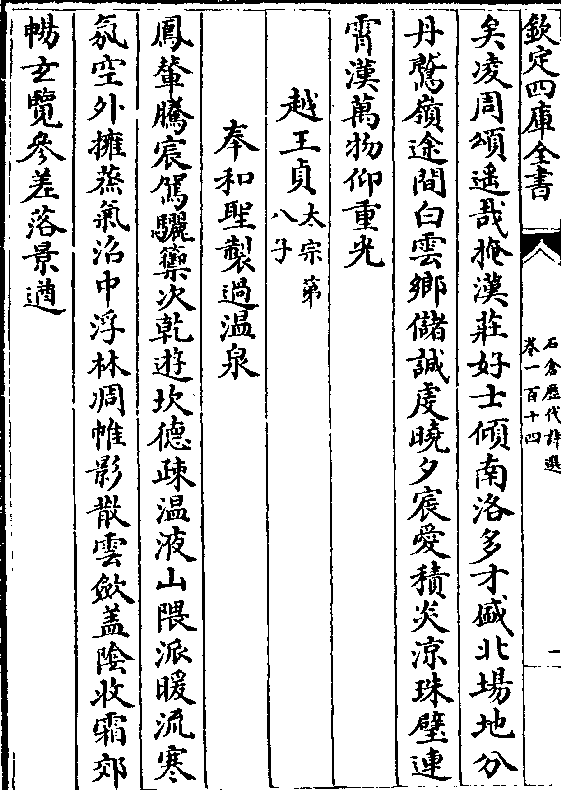 欽定四庫全書
石倉歷代詩選
卷一百十四
一
矣凌周頌遥哉掩漢莊好士傾南洛多才盛北場地分
丹鷲嶺途間白雲鄉儲誠虔曉夕宸愛積炎涼珠璧連
霄漢萬物仰重光
越王貞太宗第
八子
奉和聖製過温泉
鳳輦騰宸駕驪籞次乾遊坎德疎温液山隈派暖流寒
氛空外擁蒸氣沿中浮林凋帷影散雲斂盖陰收霜郊
暢玄覽參差落景遒